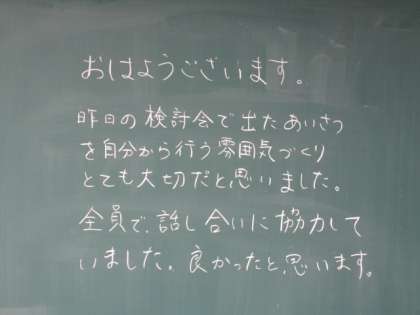 おはようございます。
昨日の検討会で出たあいさつ
を自分から行う雰囲気づくり
とても大切だと思いました。
全員で、話し合いに協力して
いました。良かったと思います。